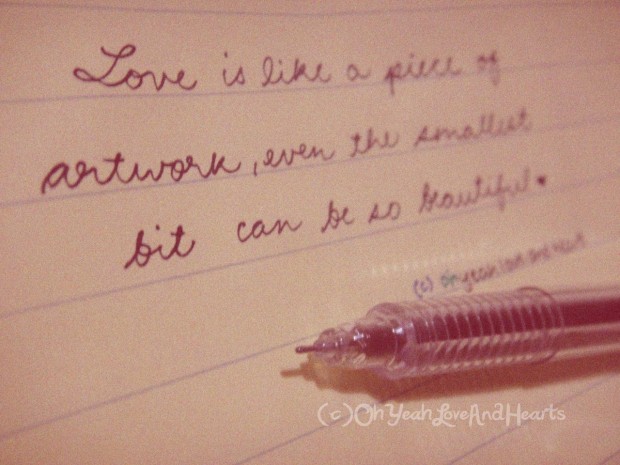 Love is like a piece of
artwork, even the smallest
bit can be so beautiful.
(c) oh yeah love and heart
(c)OhYeahLoveAndHearts